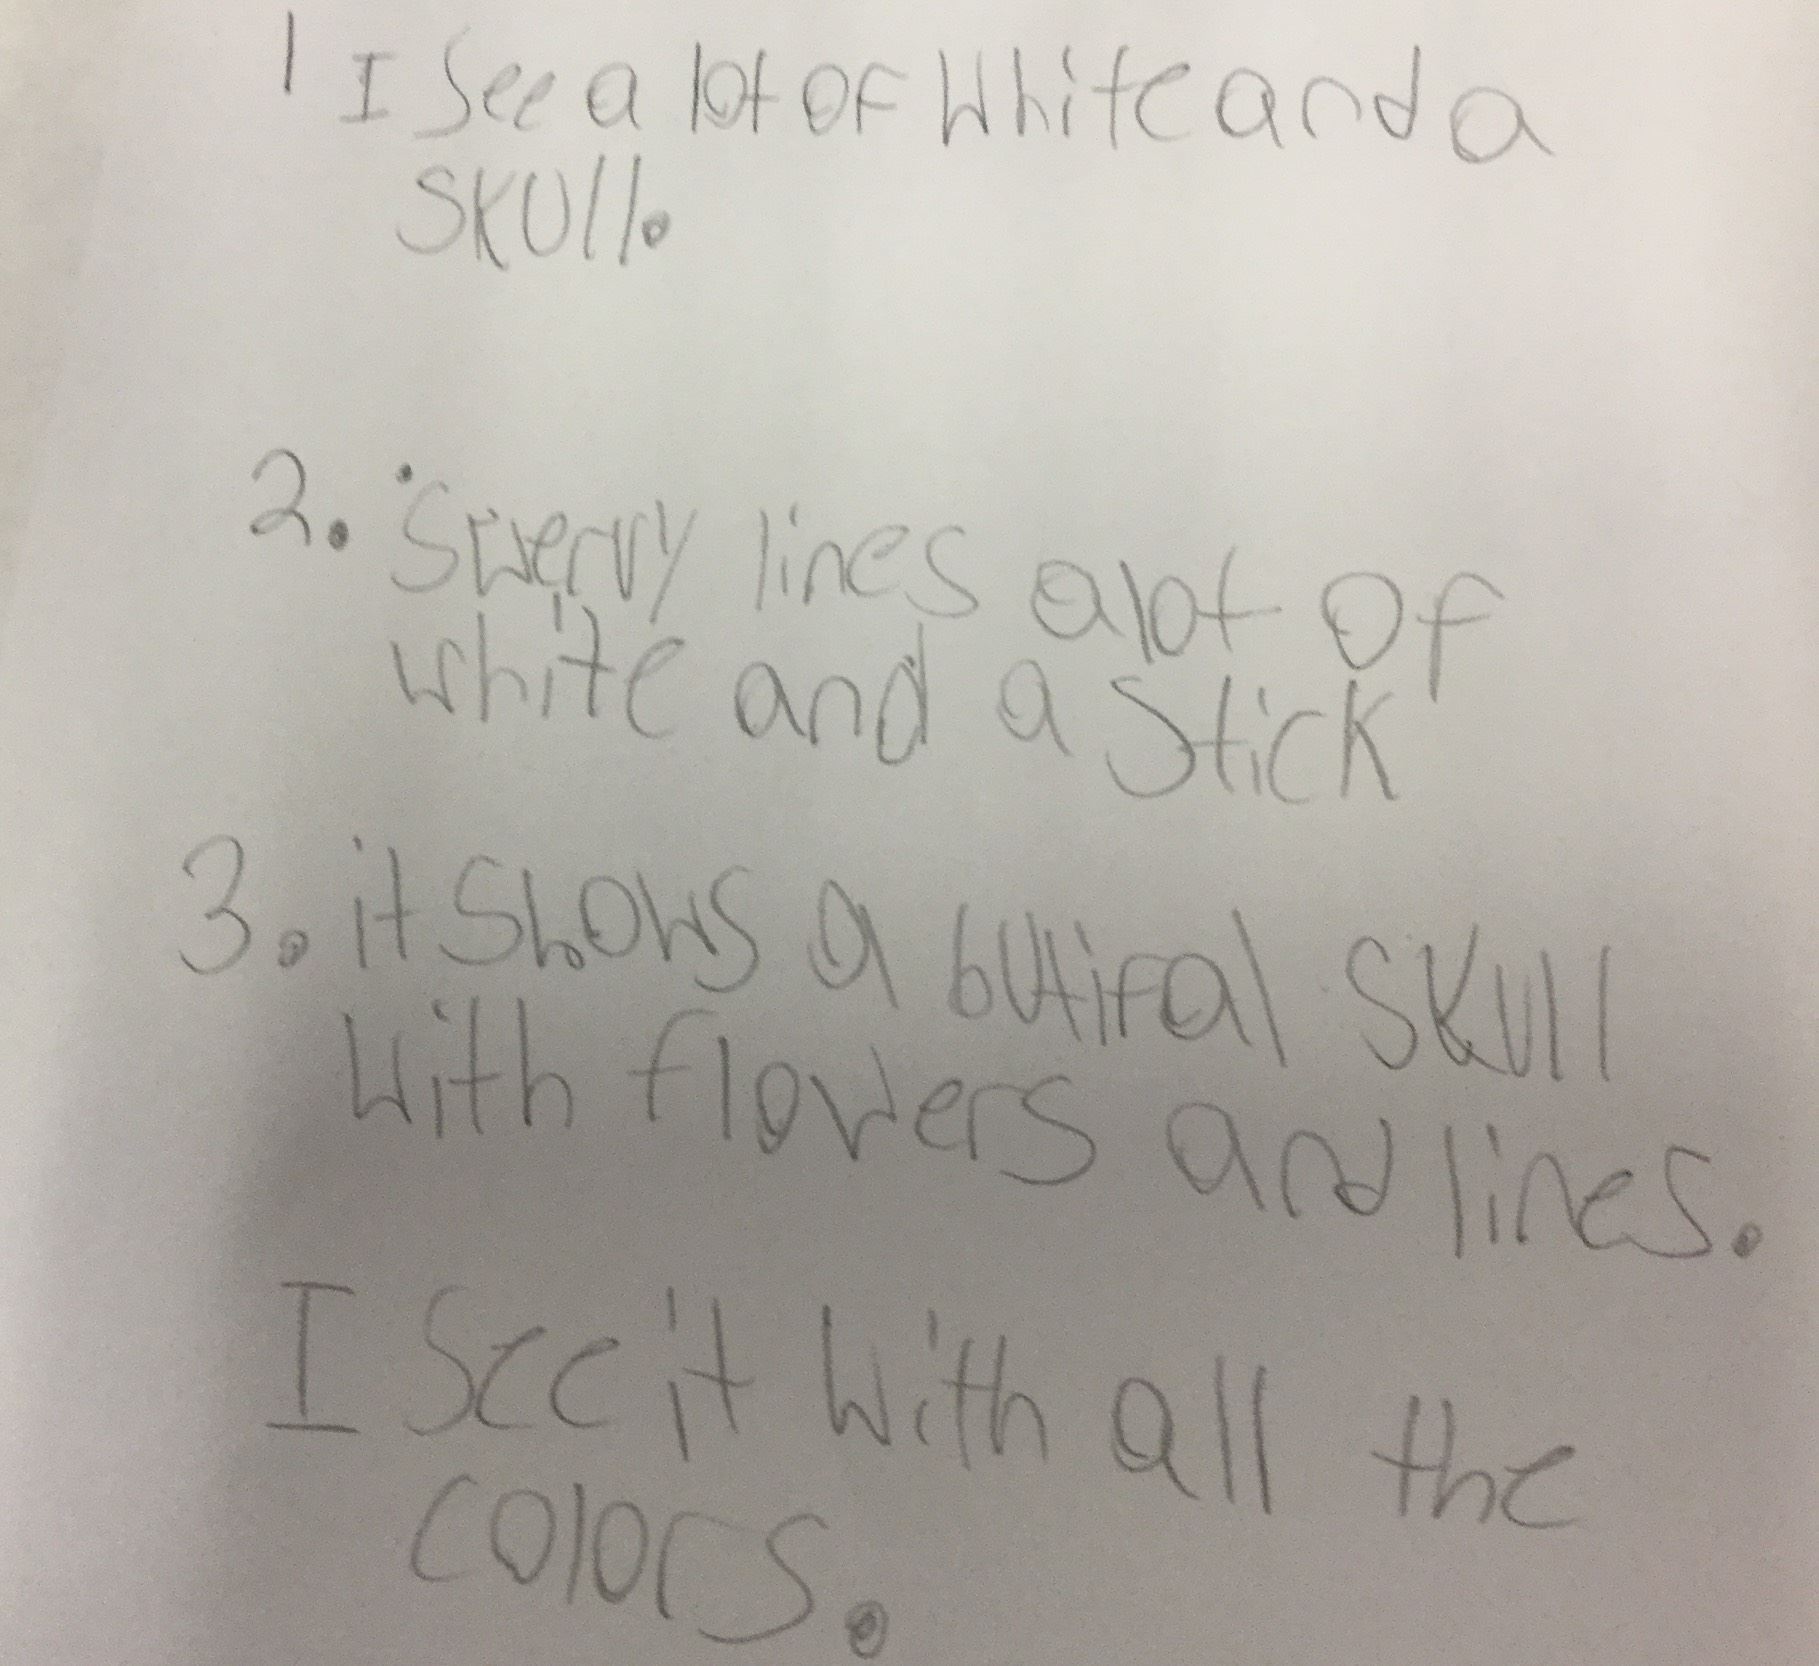 1 I See a lot of White and a
SKUll.
2. Swervy lines alot of
white and a Stick
3. it Shows a butifal SKUll
With flowers and lines.
I See it With all the
colors.